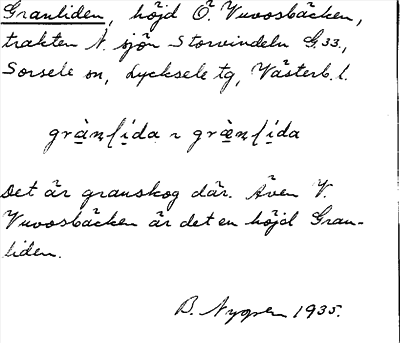 Granliden, höjd Ö. Vuvosbäcken,
trakten N. sjön Storvindeln G.33.,
Sorsele sn, Lycksele tg, Västerb. l.
grànlida ~ græ̀nlida
Det är granskog där. Även V.
Vuvosbäcken är det en höjd Gran-
liden.
B. Nygren 1935.